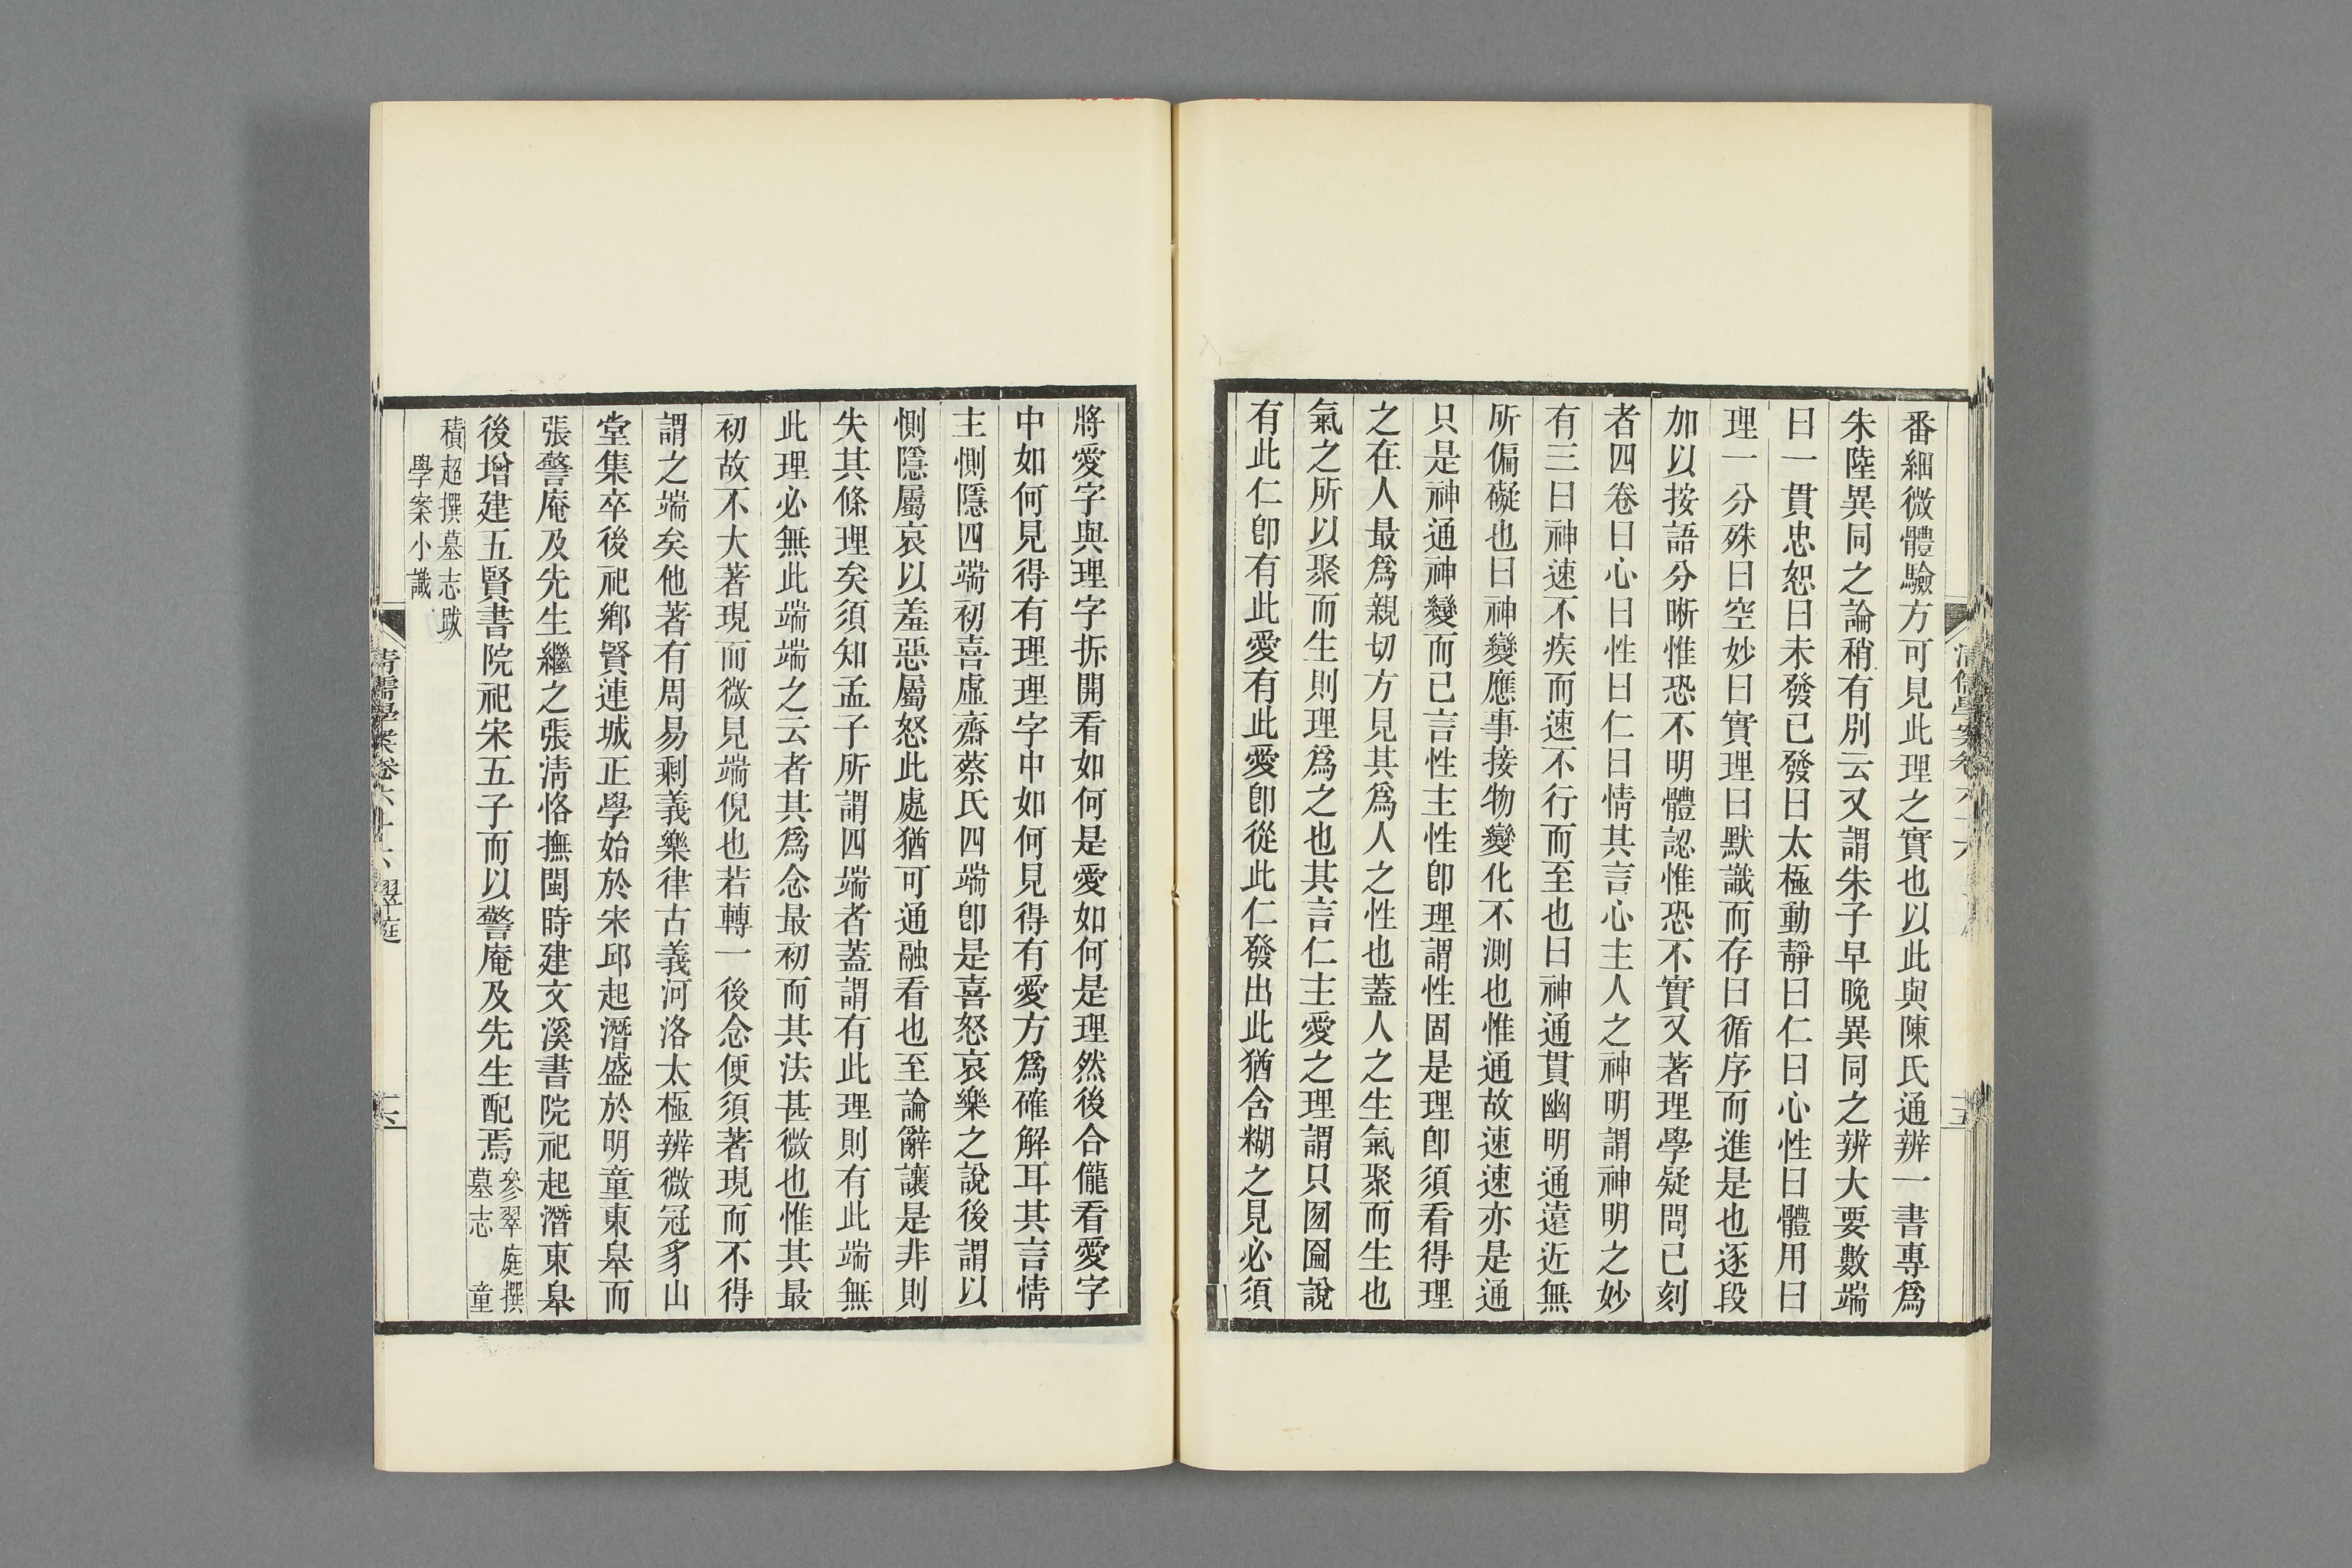 番細微體驗方可見此理之實也以此與陳氏通辨一書專爲
朱陸異同之論稍有別云又謂朱子早晚異同之辨大要數端
曰一貫忠恕曰未發已發曰太極動靜曰仁曰心性曰體用曰
理一分殊曰空妙曰實理曰默識而存曰循序而進是也逐段
加以按語分晰惟恐不明體認惟恐不實又著理學疑問已刻
者四卷曰心曰性曰仁曰情其言心主人之神明謂神明之妙
有三曰神速不疾而速不行而至也曰神通貫幽明通遠近無
所偏礙也曰神變應事接物變化不測也惟通故速速亦是通
只是神通神變而已言性主性卽理謂性固是理卽須看得理
之在人最爲親切方見其爲人之性也蓋人之生氣聚而生也
氣之所以聚而生則理爲之也其言仁主愛之理謂只囫圇說
有此仁卽有此愛有此愛卽從此仁發出此猶含糊之見必須
將愛字與理字拆開看如何是愛如何是理然後合儱看愛字
中如何見得有理理字中如何見得有愛方爲確解耳其言情
主惻隱四端初喜虛齋蔡氏四端卽是喜怒哀樂之說後謂以
惻隱屬哀以羞惡屬怒此處猶可通融看也至論辭讓是非則
失其條理矣須知孟子所謂四端者蓋謂有此理則有此端無
此理必無此端端之云者其爲念最初而其法甚微也惟其最
初故不大著現而微見端倪也若轉一後念便須著現而不得
謂之端矣他著有周易剩義樂律古義河洛太極辨微冠豸山
堂集卒後祀鄉賢連城正學始於宋邱起潛盛於明童東皋而
張警庵及先生繼之張淸恪撫閩時建文溪書院祀起潛東皋
後增建五賢書院祀宋五子而以警庵及先生配焉參翠庭撰
墓志 童
積超撰墓志跋
學案小識
清儒學案卷六十六 翠庭